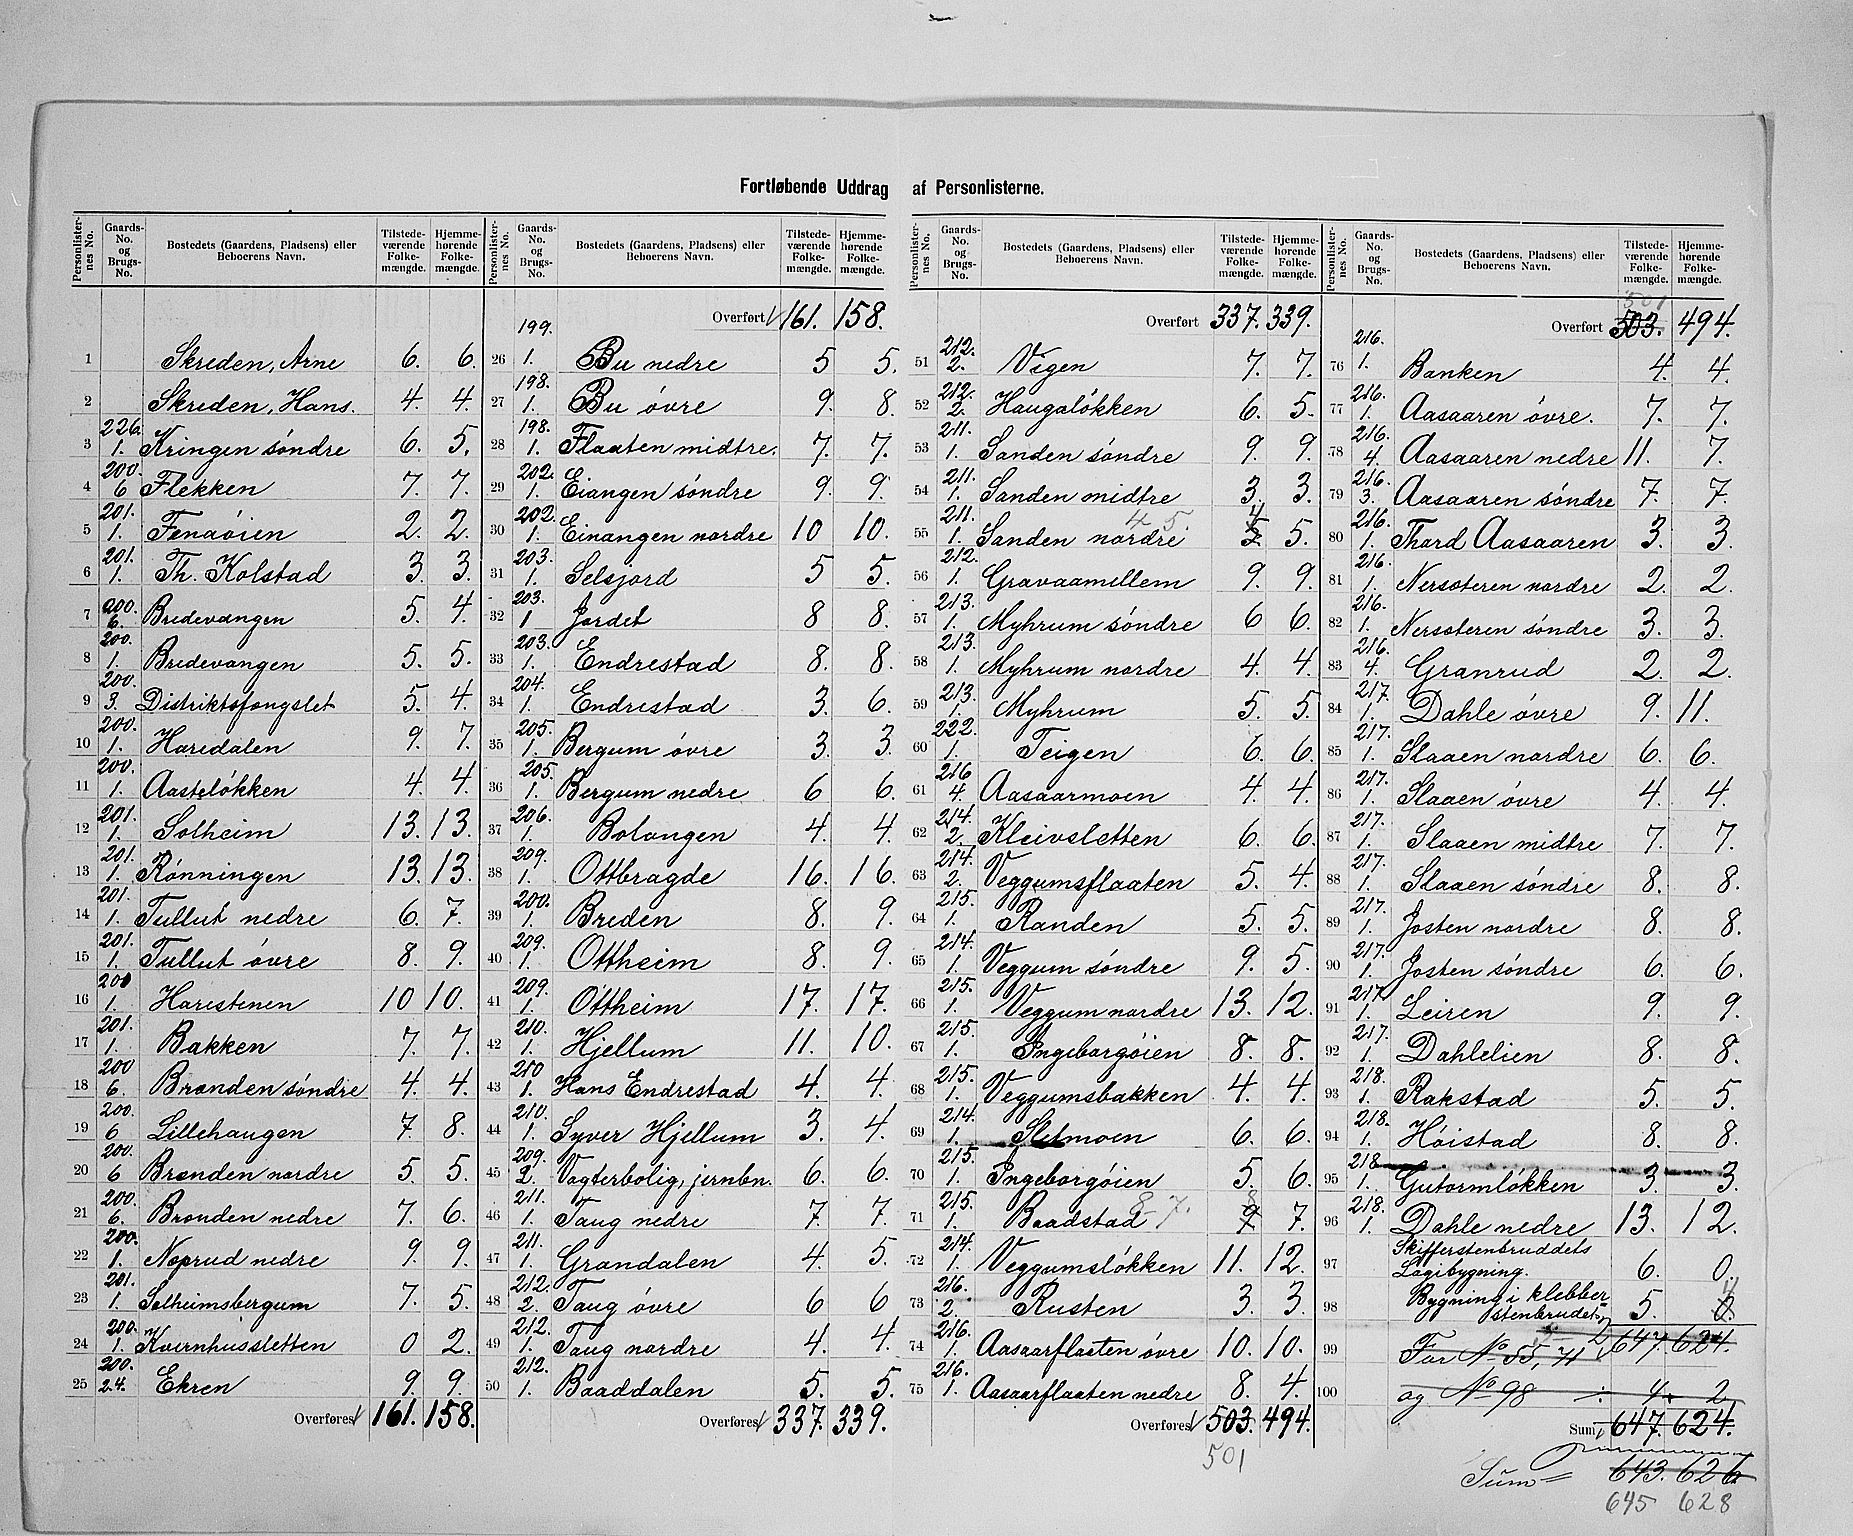 Fortløbende Uddrag af Personlisterne.
Personlister-nes No. | Gaards-No. og Brugs-No. | Bostedets (Gaardens, Pladsens) eller Beboerens Navn. | Tilstede-værende Folke-mængde. | Hjemme-hørende Folke-mængde.
1 Skreden, Arne 6. 6.
2 Skreden, Hans. 4. 4.
3 226. 1. Kringen söndre 6. 5.
4 200. 6 Flekken 7. 7.
5 201. 1. Fenaöien 2. 2.
6 201. 1. Th. Kolstad 3. 3.
7 200. 6. Bredevangen 5. 4.
8 200. 1. Bredevangen 5. 5.
9 200. 3. Distriktsfængslet 5. 4.
10 200. 1. Haredalen 9. 7.
11 200. 1. Aasteløkken 4. 4.
12 201. 1. Solheim 13. 13.
13 201. 1. Rönningen 13. 13.
14 201. 1. Tullut nedre 6. 7.
15 201. 1. Tullut övre 8. 9.
16 200 1. Harestenen 10 10.
17 201. 1. Bakken 7. 7.
18 200 6. Brænden söndre 4. 4.
19 200. 6 Lillehaugen 7. 8.
20 200. 6 Brænden nordre 5. 5.
21 200. 6. Brænden nedre 7. 6.
22 200. 1. Noprud nedre 9. 9.
23 201. 1. Solheimsbergum 7. 5.
24 200. 1. Kvernhussletten 0 2.
25 200. 24. Ekren 9. 9.
Overføres 161. 158.
Personlister-nes No. | Gaards-No. og Brugs-No. | Bostedets (Gaardens, Pladsens) eller Beboerens Navn. | Tilstede-værende Folke-mængde. | Hjemme-hørende Folke-mængde.
Overført 161. 158.
26 199. 1. Bu nedre 5 5.
27 198. 1. Bu övre 9. 8.
28 198. 1. Flaaten midtre. 7. 7.
29 202. 1. Eiangen söndre 9. 9.
30 202. 1. Einangen nordre 10 10.
31 203. 1. Selsjord 5 5.
32 203. 1 Jordet 8 8.
33 203. 1. Endrestad 8. 8.
34 204. 1. Endrestad 3. 6.
35 205. 1. Bergum övre 3. 3.
36 205. 1. Bergum nedre 6 6.
37 206. 1. Bolongen 4. 4.
38 209. 1. Ottbragde 16. 16.
39 200. 1. Breden 8. 9.
40 209. 1. Ottheim 8. 9.
41 209. 1. Ottheim 17. 17.
42 210. 1. Hjellum 11. 10.
43 210 1. Hans Endrestad 4. 4.
44 210. 1. Syver Hjellum 3. 4.
45 209. 2. Vogterbolig, jernbn. 6. 6.
46 211. 1. Taug nedre 7. 7.
47 211. 1. Grandalen 4. 5.
48 212. 2. Taug övre 6 6
49 212. 1. Taug nordre 4. 4.
50 212. 1. Baaddalen 5. 5.
Overføres 337. 339.
Personlister-nes No. | Gaards-No. og Brugs-No. | Bostedets (Gaardens, Pladsens) eller Beboerens Navn. | Tilstede-værende Folke-mængde. | Hjemme-hørende Folke-mængde.
Overført 337. 339.
51 212. 2. Vigen 7. 7.
52 212. 2. Haugalökken 6. 5.
53 211. 1. Sanden söndre 9. 9.
54 211. 1. Sanden midtre 3. 3.
55 211. 1. Sanden nordre 4 5. 4 5.
56 212. 1. Gravaamellem 9. 9.
57 213. 1. Myhrum söndre 6 6.
58 213. 1. Myhrum nordre 4. 4.
59 213. 1. Myhrum 5. 5.
60 222. 1. Teigen 6. 6.
61 216 4. Aasaarmoen 4. 4.
62 214. 2. Kleivsletten 6. 6.
63 214. 2. Veggumsflaaten 5. 4.
64 215. 1. Randen 5. 5.
65 214. 1. Veggum söndre 9. 5.
66 215. 1. Veggum nordre 13. 12.
67 215. 1. Ingeborgöien 8. 8.
68 215. 1. Veggumsbakken 4. 4.
69 214. 1. Sletmoen 6. 6.
70 215. 1. Ingeborgöien 5. 6.
71 215. 1. Baadstad 8 7. 8 9. 7.
72 214. 1. Veggumslökken 11. 12.
73 216. 2. Rusten 3. 3.
74 216. 1. Aasaarflaaten övre 10. 10.
75 216. 1. Aasaarflaaten nedre 8. 4.
Overføres 503. 494.
501
Personlister-nes No. | Gaards-No. og Brugs-No. | Bostedets (Gaardens, Pladsens) eller Beboerens Navn. | Tilstede-værende Folke-mængde. | Hjemme-hørende Folke-mængde.
501
Overført 503. 494.
76 216. 1. Banken 4. 4.
77 216. 1. Aasaaren övre. 7. 7.
78 216. 4. Aasaaren nedre 11. 7.
79 216. 3. Aasaaren söndre 7. 7.
80 216. 1. Thord Aasaaren 3. 3.
81 216. 1. Nersæteren nordre 2. 2.
82 216. 1. Nersæteren söndre 3. 3.
83 216. 4. Granrud 2. 2.
84 217. 1. Dahle övre 9. 11.
85 217. 1. Slaaen nordre 6. 6.
86 217. 1. Slaaen övre 4. 4.
87 217. 1. Slaaen midtre 7. 7.
88 217. 1. Slaaen söndre 8. 8.
89 217. 1. Josten nordre 8. 8.
90 217. 1. Josten söndre 6. 6.
91 217 1. Leiren 9. 9.
92 217. 1. Dahlelien 8. 8.
93 218. 1. Rakstad 5. 5.
94 218. 1. Höistad 8. 8.
95 218 1. Gutormlökken 3. 3.
96 218. 1. Dahle nedre 13. 12.
97 Skifferstenbruddets Logibygning. 6. 0.
98 Bygning i klebberstenbrudet 5. 4
99 Før No 55, 71 647. 624.
100 og No 98 ÷ 4. 2
Sum 647. 624.
Sum= 643. 626
645 628